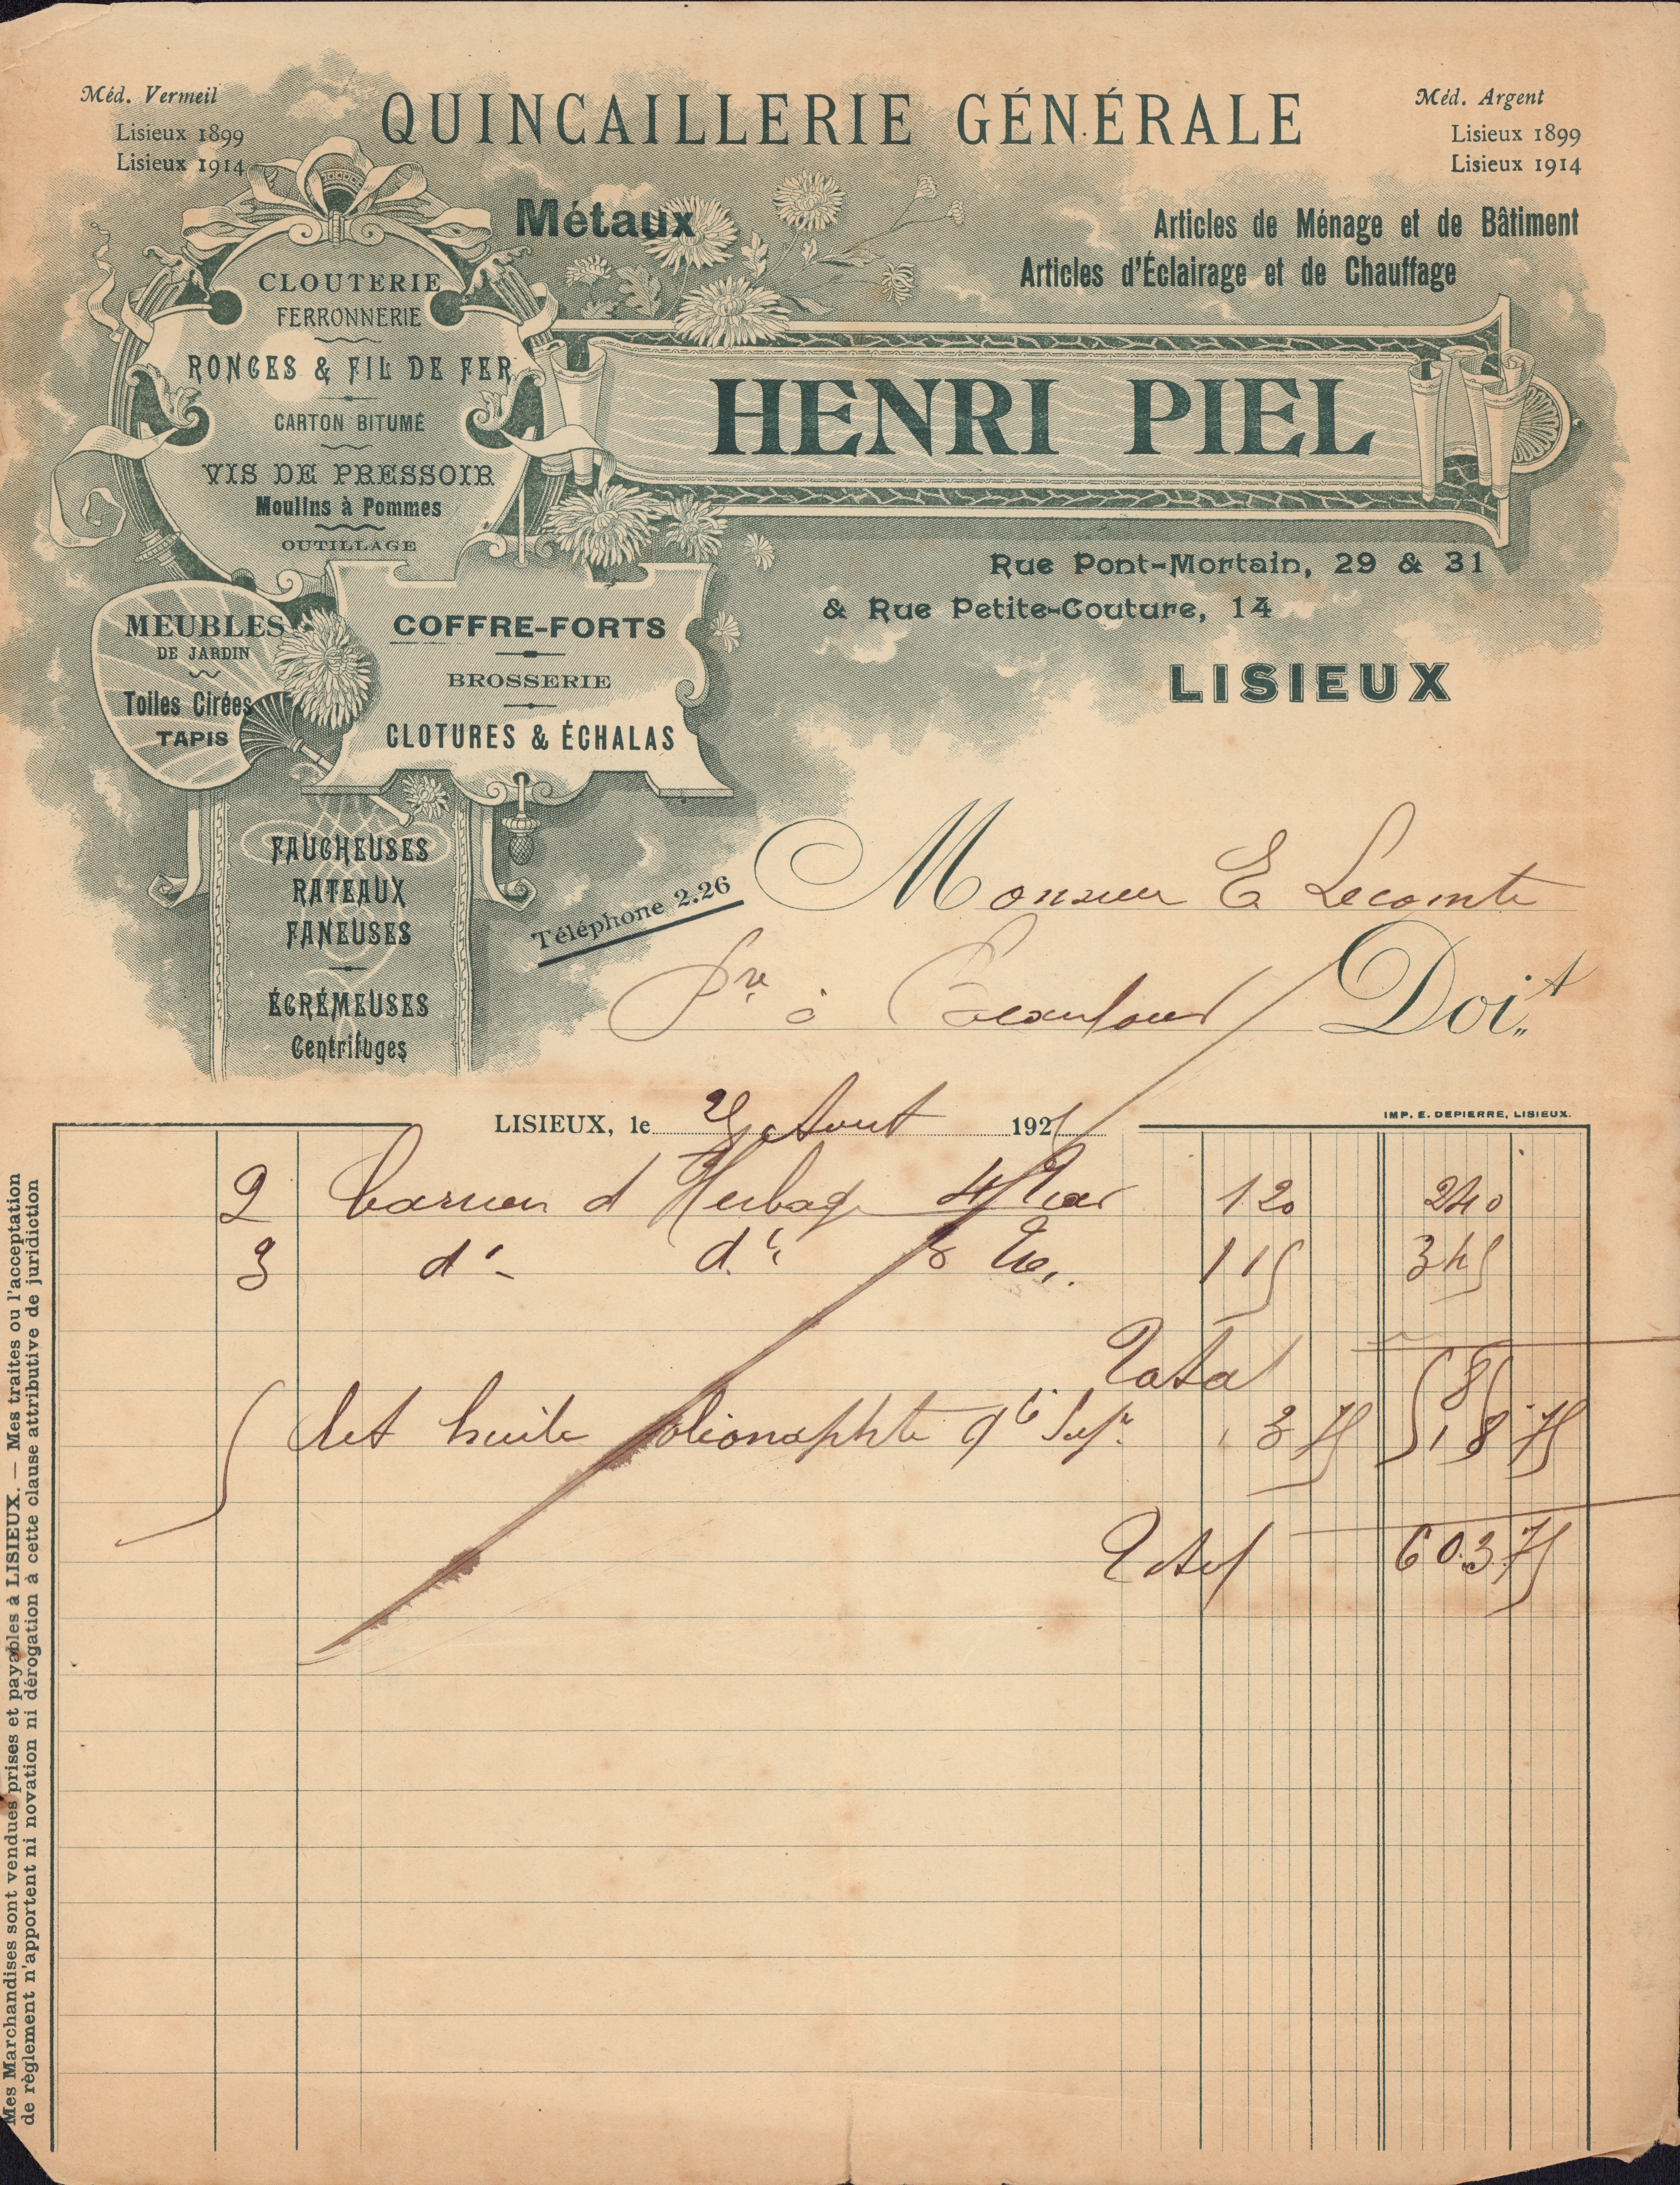 Méd. Vermeil
Lisieux 1899
Lisieux 1914
QUINCAILLERIE GÉNÉRALE
Méd. Argent
Lisieux 1899
Lisieux 1914
Métaux
Articles de Ménage et de Bâtiment
Articles d'Éclairage et de Chauffage
CLOUTERIE
FERRONNERIE
RONCES & FIL DE FER
CARTON BITUMÉ
VIS DE PRESSOIR
Moulins à Pommes
OUTILLAGE
HENRI PIEL
Rue Pont-Mortain, 29 & 31
& Rue Petite-Couture, 14
LISIEUX
MEUBLES
DE JARDIN
Toiles Cirées
TAPIS
COFFRE-FORTS
BROSSERIE
CLOTURES & ÉCHALAS
FAUCHEUSES
RATEAUX
FANEUSES
ÉCRÉMEUSES
Centrifuges
Téléphone 2.26
Monsieur E Lecomte
à Doit
LISIEUX, le Aout 192
IMP. E. DEPIERRE, LISIEUX.
2 d'Herbage 120 240
3 d° d° 115 345
Total 585
5 Lit huile qté Supre 3 75 18 75
Total 603.75
Mes Marchandises sont vendues prises et payables à LISIEUX. — Mes traites ou l'acceptation
de règlement n'apportent ni novation ni dérogation à cette clause attributive de juridiction